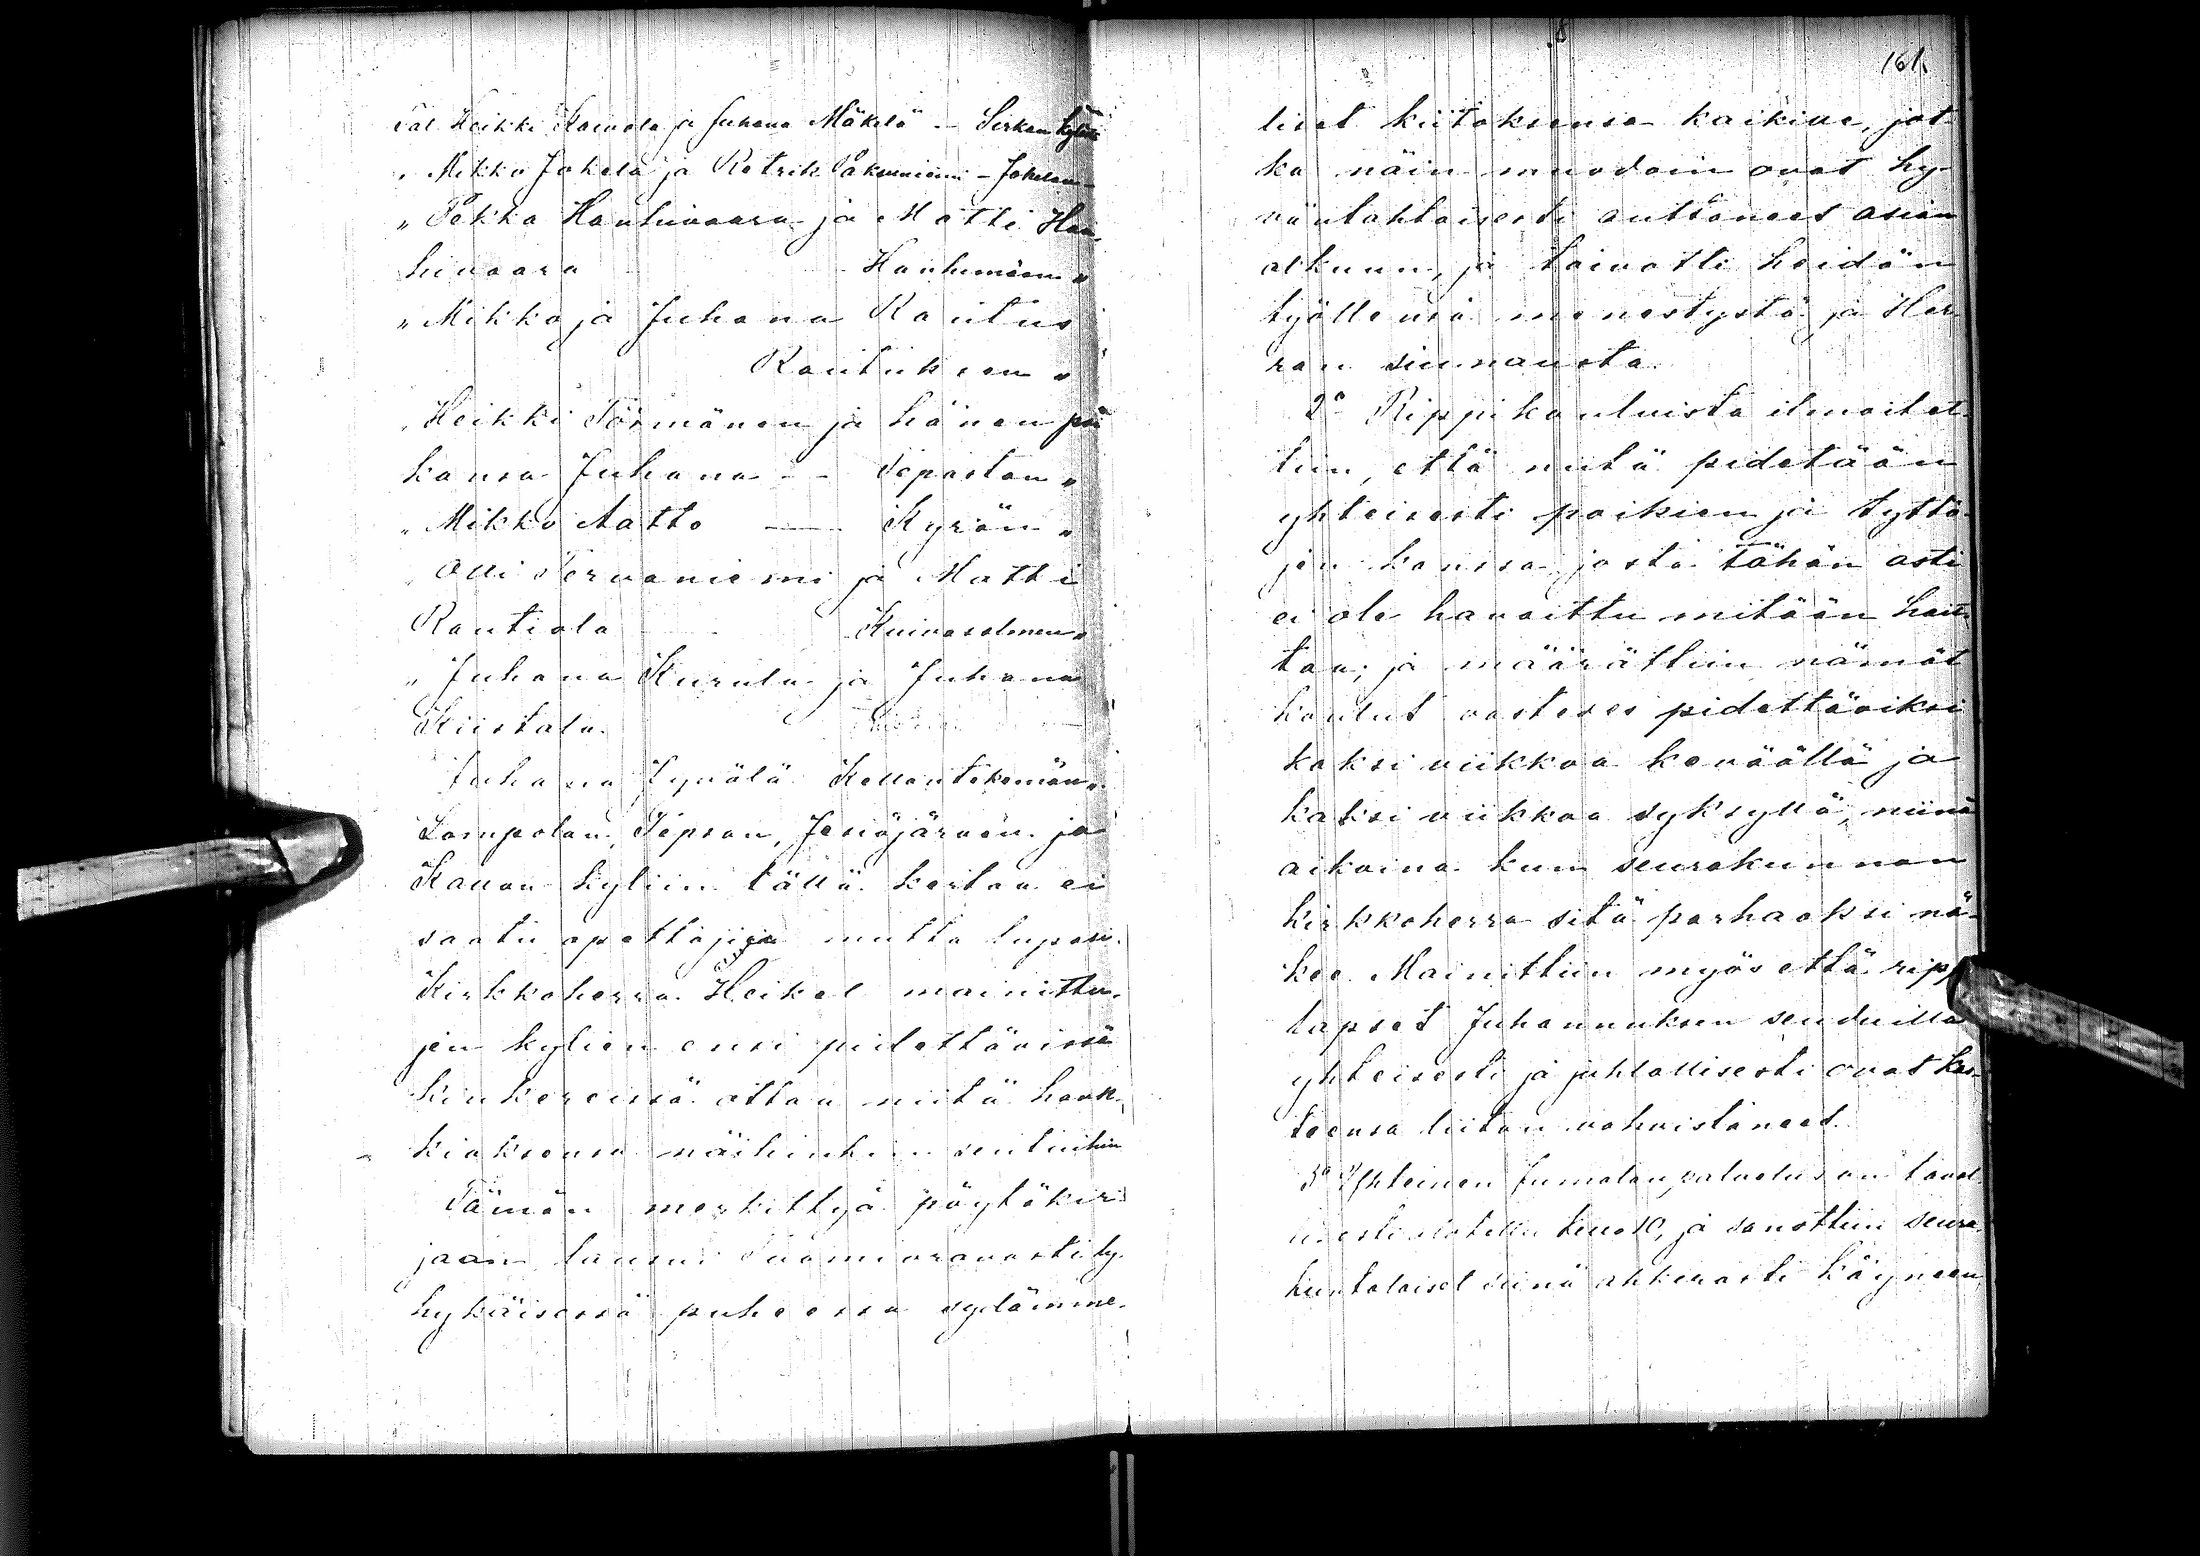 Tal. Heikki Kaivola ja Juhana Mäkelä - Sirkan kylän
" Mikko Jokela ja Retrik - Jokelan -
" Pekka Hanhivaara ja Matti Han-
hivaara Hanhimaan "
" Mikko ja Juhana Rautus
Rautuksen "
" Heikki Törmänen ja hänen poi
kansa Juhana - - Sepastan "
" Mikko Aatto — Kyrön "
" Olli Tervaniemi ja Matti
Rautiola Kuivasalmen "
" Juhana Kurula ja Juhana
Kiistala.
Juhana Kellontekemän "
Lompolan, Tepson, Jesiöjärven ja
Kallon kyliin tällä kertaa ei
saatu opettajija mutta lupasi
Kirkkoherra Heikel mainittu-
jen kylien ensi pidettävissä
kinkereissä ottaa niitä hank-
kiaksensa näihinkin seutuihin
Tämän merkittyä pöytäkir
jaan lausui Suomi oravasti ly-
hykäisessä puheessa sydämme-
8
161.
liset kiitoksensa kaikille, jot
ka näin muodoin ovat hy-
väntahtoisesti auttaneet asian
alkuun, ja toivotti heidän
työllensä menestystä ja Her
ran siunausta.
2o Rippikouluista ilmoitet-
tiin, että niitä pidetään
yhteisesti poikien ja tyttö-
jen kanssa josta tähän asti
ei ole havaittu mitään hait-
taa; ja määrättiin nämät
koulut vastedes pidettäviksi
kaksi viikkoa keväällä ja
kaksi viikkoa syksyllä, niinä
aikoina kun seurakunnan
kirkkoherra sitä parhaaksi nä-
kee. Mainittiin myös että ripp
lapset Juhannuksen seuduilla
yhteisesti ja juhlallisesti ovat kas-
teensa liiton vahvistaneet.
3o Yhteinen Jumalan palvelus on taval
lisesti alotettu kello 10, ja sanottiin seura-
kuntalaiset siinä ahkerasti käyneen,